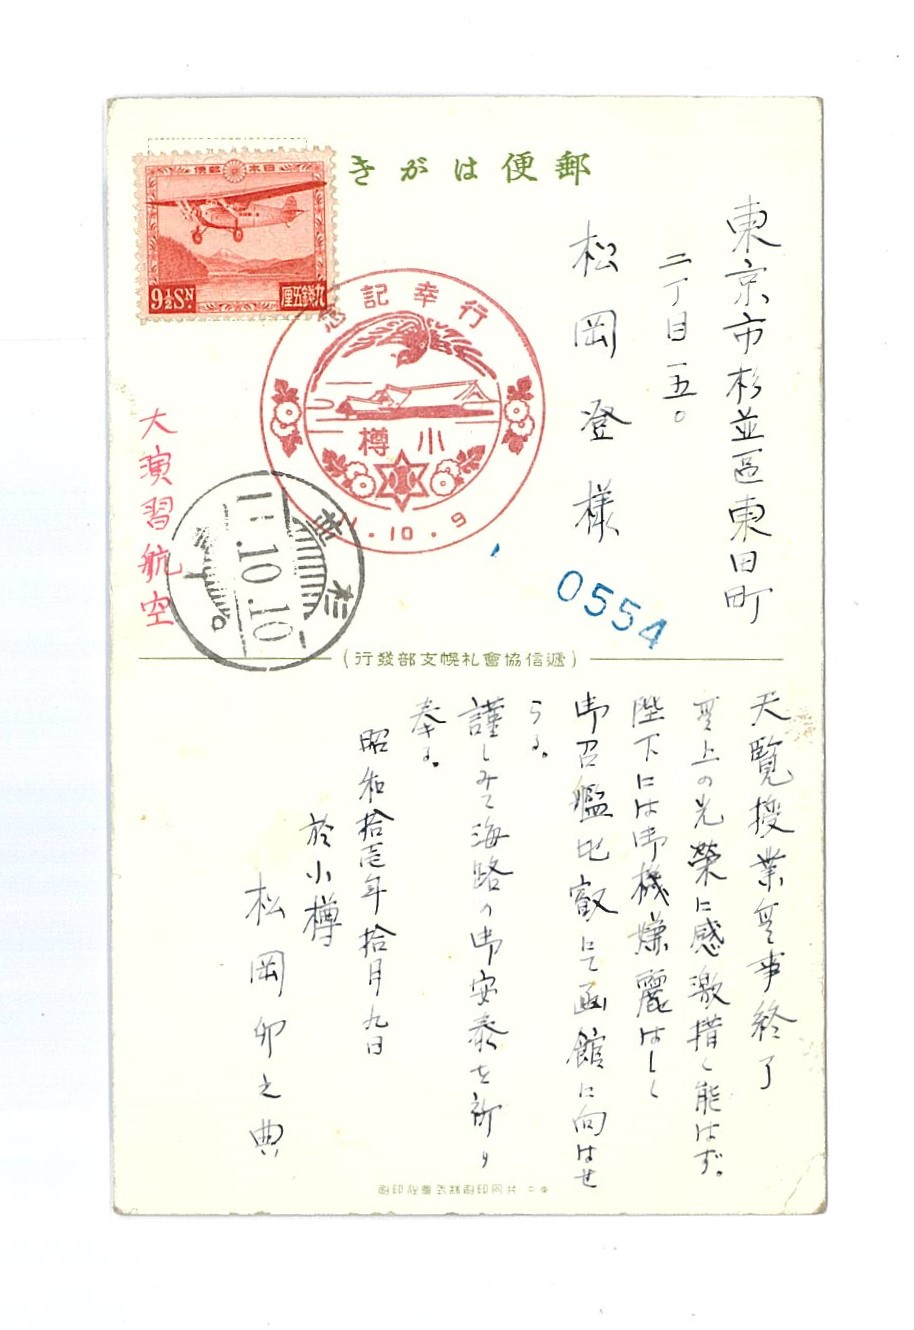 郵便はがき
日本郵便
9½SN.
九銭五厘
行幸記念
小樽
.10.9
杉並
11.10.10
大演習航空
0554
東京市杉並區東田町
二丁目一五〇
松岡登様
(遞信協會札幌支部發行)
天覧授業無事終了
無上の光榮に感激措く能はず。
陛下には御機嫌麗はしく
御召艦比叡にて函館に向はせ
らる。
謹しみて海路の御安泰を祈り
奉る。
昭和拾壱年拾月九日
於小樽
松岡卯之典